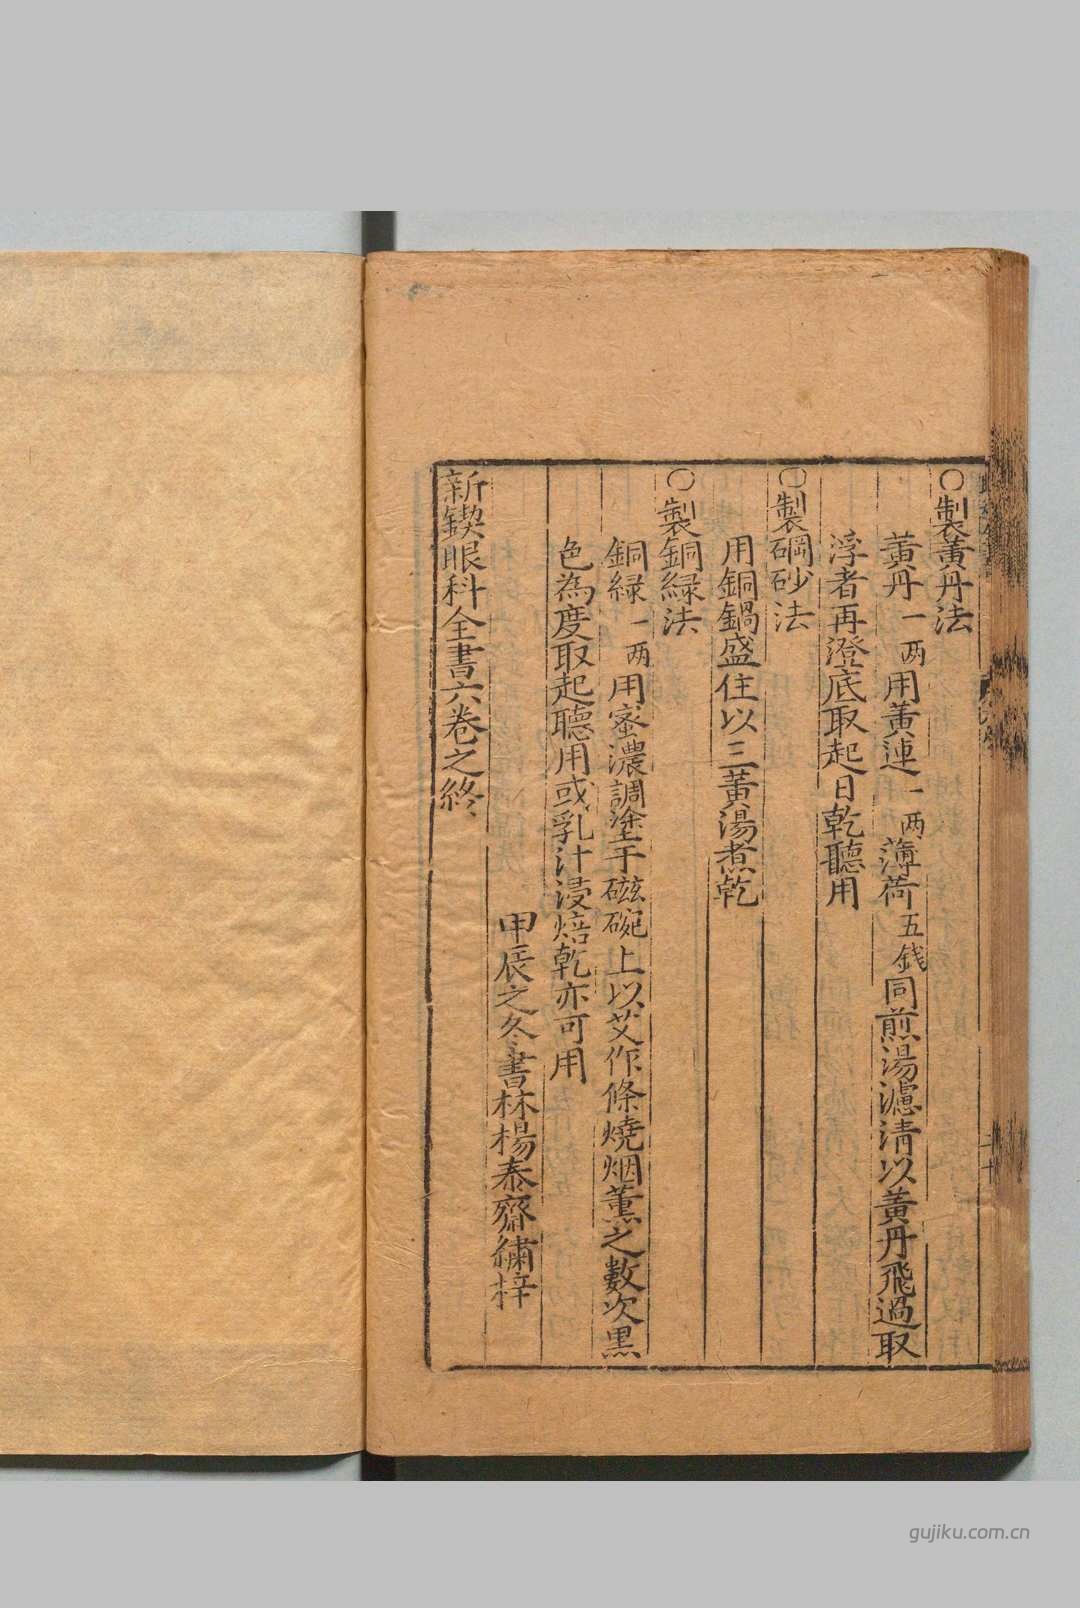 ○製黃丹法
黃丹一两用黃連一两薄荷五錢同煎湯濾清以黃丹飛過取
浮者再澄底取起日乾聽用
○製碙砂法
用銅鍋盛住以三黃湯煮乾
○製銅緑法
銅緑一两用蜜濃調塗于磁碗上以艾作條燒烟薰之數次黒
色為度取起聽用或乳汁浸焙乾亦可用
甲辰之冬書林楊泰齋綉梓
新鍥眼科全書六卷之終
gujiku.com.cn